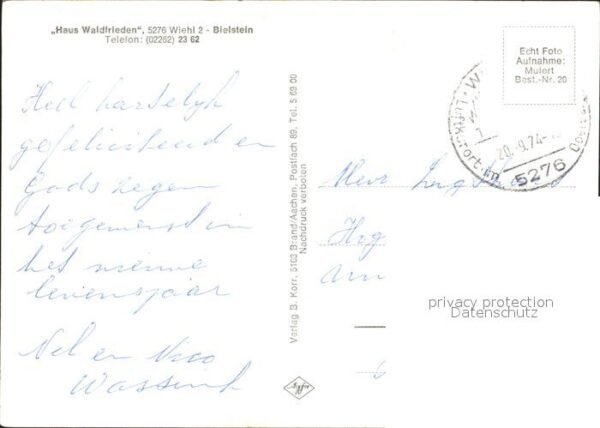 „Haus Waldfrieden", 5276 Wiehl 2 - Bielstein
Telefon: (02262) 23 62
Heel hartelijk
gefeliciteerd en
Gods zegen
toegewenst in
het nieuwe
levensjaar
Nel en Nico
Wassink
Verlag B. Korr, 5103 Brand/Aachen, Postfach 89, Tel. 5 69 00
Nachdruck verboten
Agfa
Echt Foto
Aufnahme:
Mulert
Best.-Nr. 20
20.-9.74
5276
Mevr
privacy protection
Datenschutz